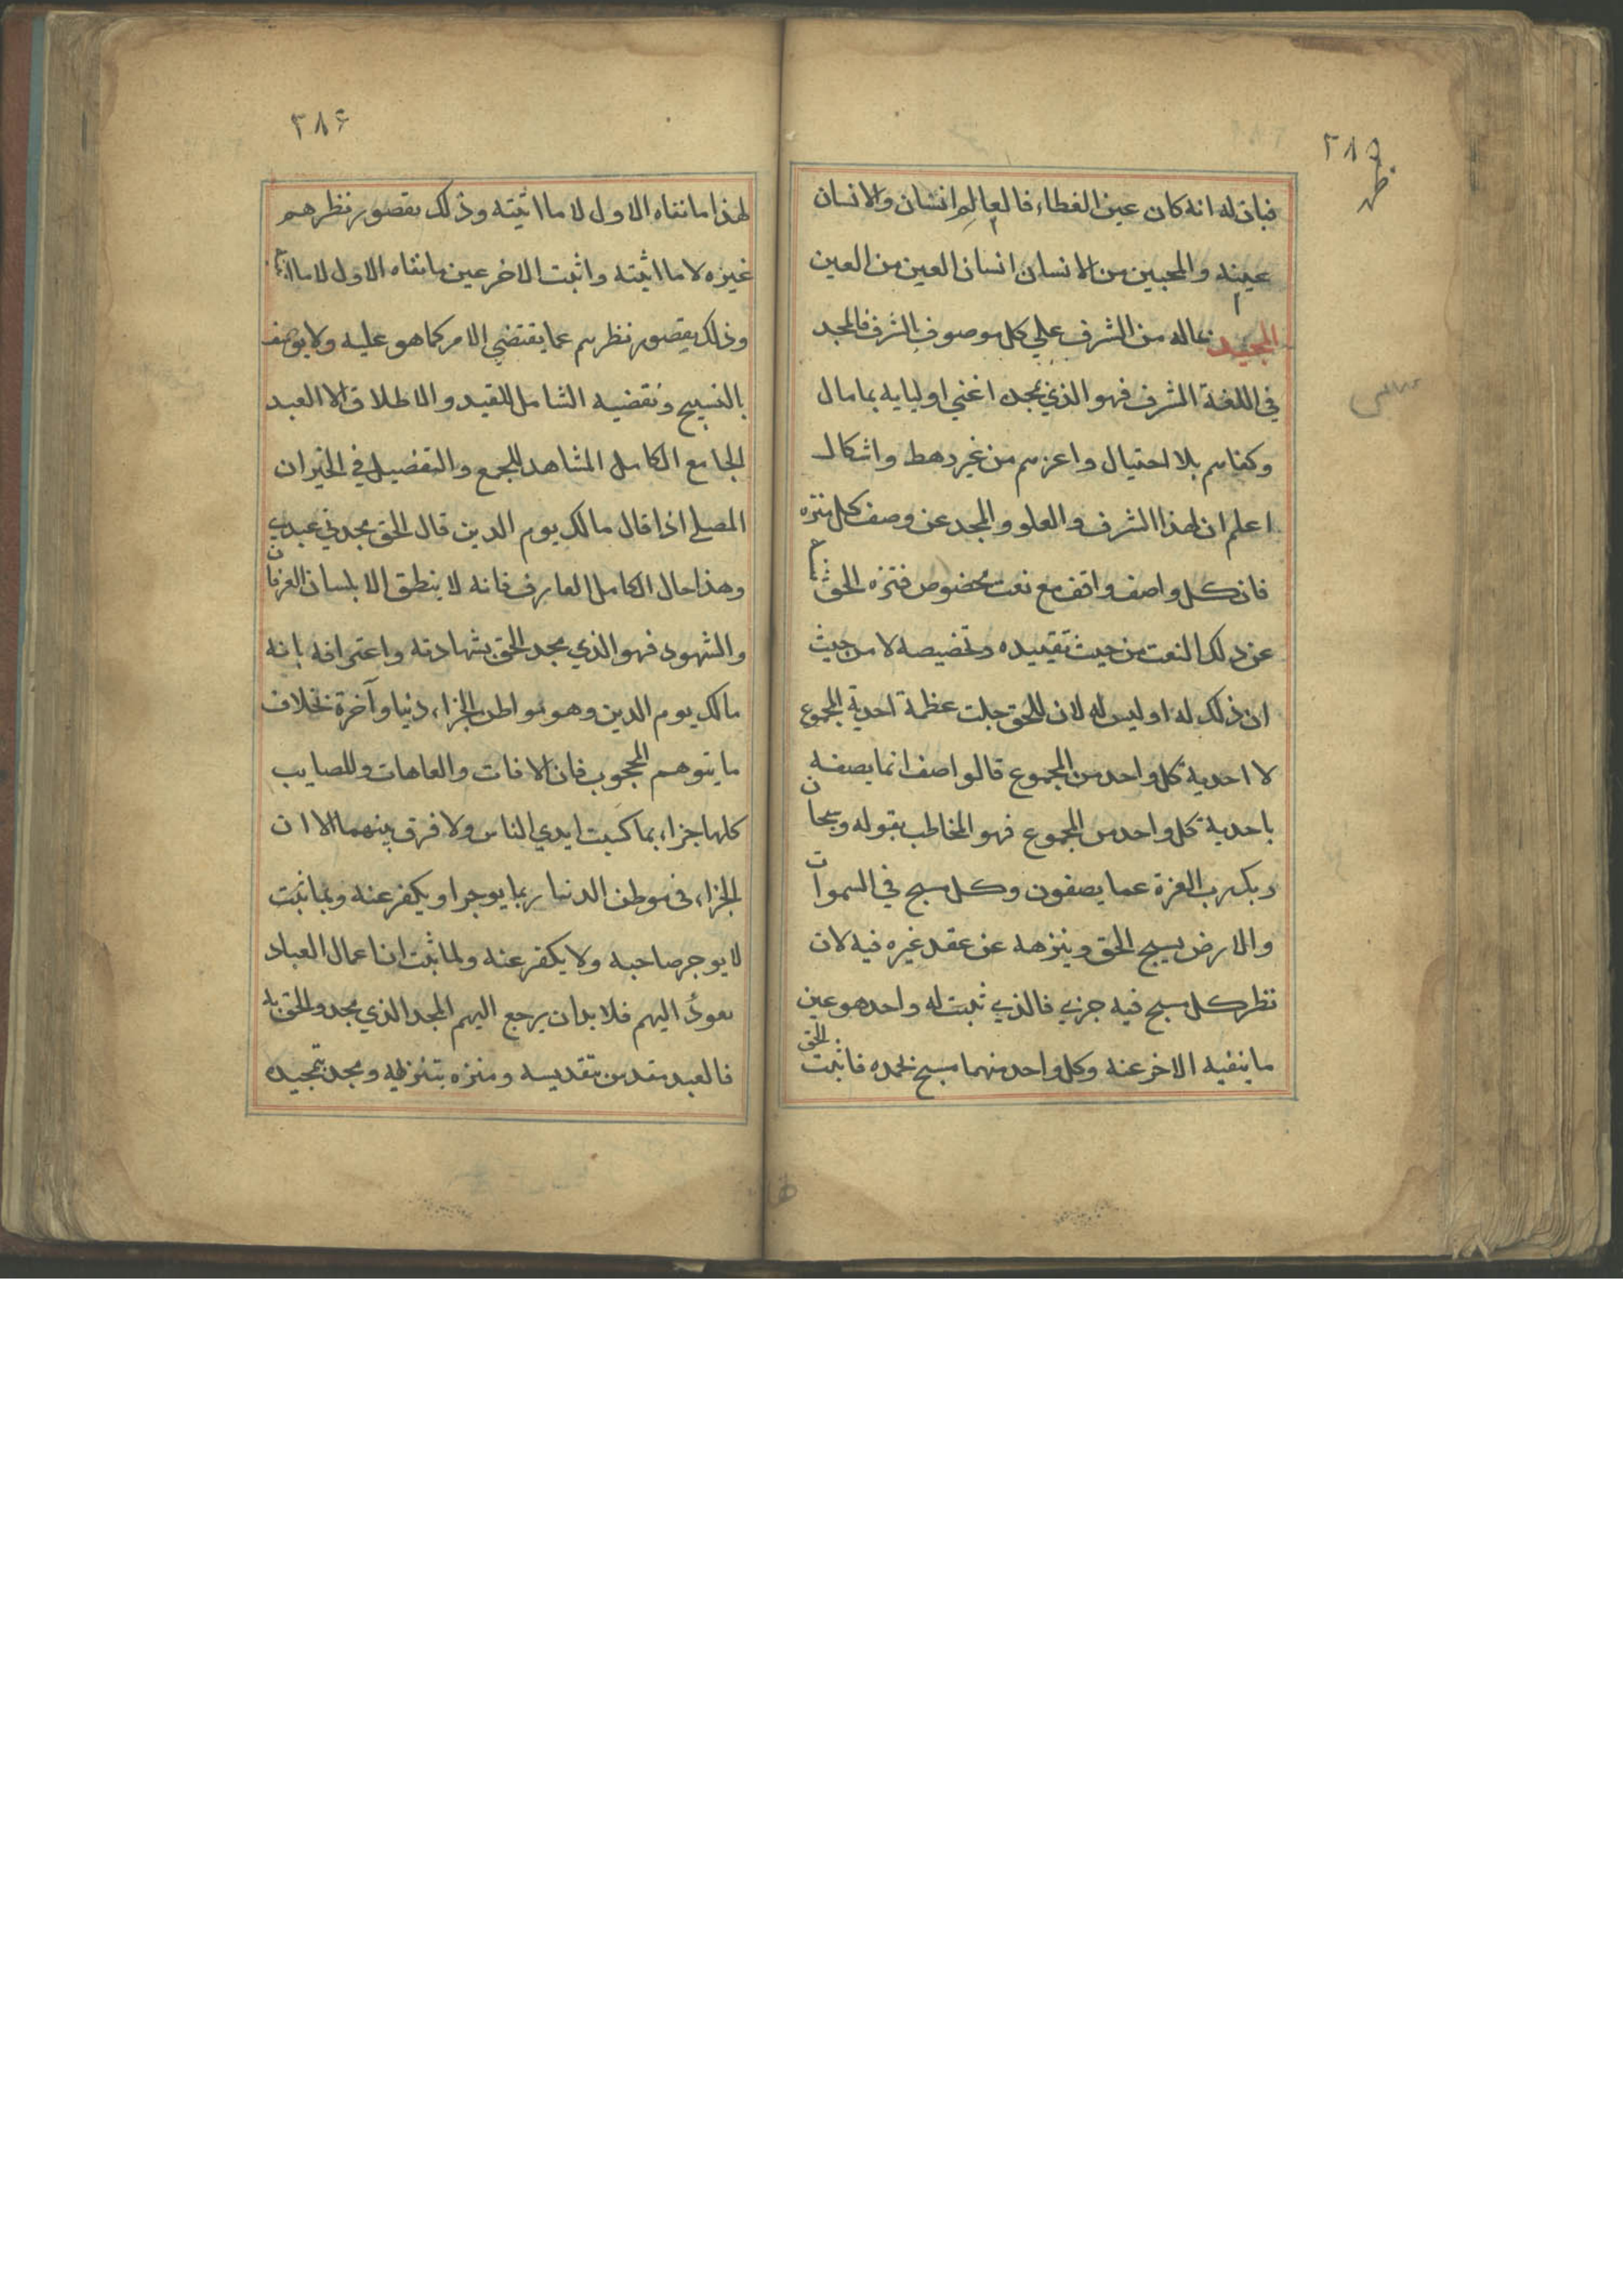 ٣٨٥
فبان له انه كان عين الغطاء فالعالم انسان والانسان
عينه والمحبين من الانسان انسان العين من العين
المجيد بماله من الشرف علي كل موصوف بالشرف فالمجد
في اللغة الشرف فهو الذي بمجده اغني اوليايه بما مال
وكفاهم بلا احتيال واعزهم من غير رهط واشكال
اعلم ان لهذا الشرف والعلو والمجد عن وصف كل منزه
فان كل واصف واقف مع نعت مخصوص فتنزه الحق
عن ذلك النعت من حيث تقييده وتخصيصه لا من حيث
ان ذلك له او ليس له لان للحق جلت عظمة احدية المجموع
لا احدية كل واحد من المجموع فالواصف انما يصفه
باحدية كل واحد من المجموع فهو المخاطب بقوله وسبحان
ربك رب العزة عما يصفون وكل مسبح في السموات
والارض يسبح الحق وينزهه عن عقد غيره فيه لان
نظر كل مسبح فيه جزيي فالذي ثبت له واحد هو عين
ما ينفيه الاخر عنه وكل واحد منهما مسبح بحمده فاثبت الحق
٣٨۶
لهذا ما نفاه الاول لا ما اثبته وذلك بقصور نظرهم
غيره لا ما اثبته واثبت الاخر عين ما نفاه الاول لا ما
وذلك بقصور نظرهم عما يقتضي الامر كما هو عليه ولا يوصف
بالتسبيح ونقضيه الشامل للقيد والاطلاق الا العبد
الجامع الكامل المشاهد للجمع والتفضيل في الخبر ان
المصلي اذا قال مالك يوم الدين قال الحق مجدني عبدي
وهذا حال الكامل العارف فانه لا ينطق الا بلسان العرفان
والشهود فهو الذي مجد الحق بشهادته واعترافه بانه
مالك يوم الدين وهو مواطن الجزاء دنيا وآخرة بخلاف
ما يتوهم المحجوب فان الافات والعاهات وللصايب
كلها جزاء بما كسبت ايدي الناس ولا فرق بينهما الا ان
الجزاء في موطن الدنيا ربما يوجر او يكفر عنه وبما ثبت
لا يوجر صاحبه ولا يكفر عنه ولما ثبت ان اعمال العباد
تعود اليهم فلا بد ان يرجع اليهم المجد الذي مجدوا الحق به
فالعبد مقدس بتقديسه ومنزه بتنزيهه ومجد بتمجيده